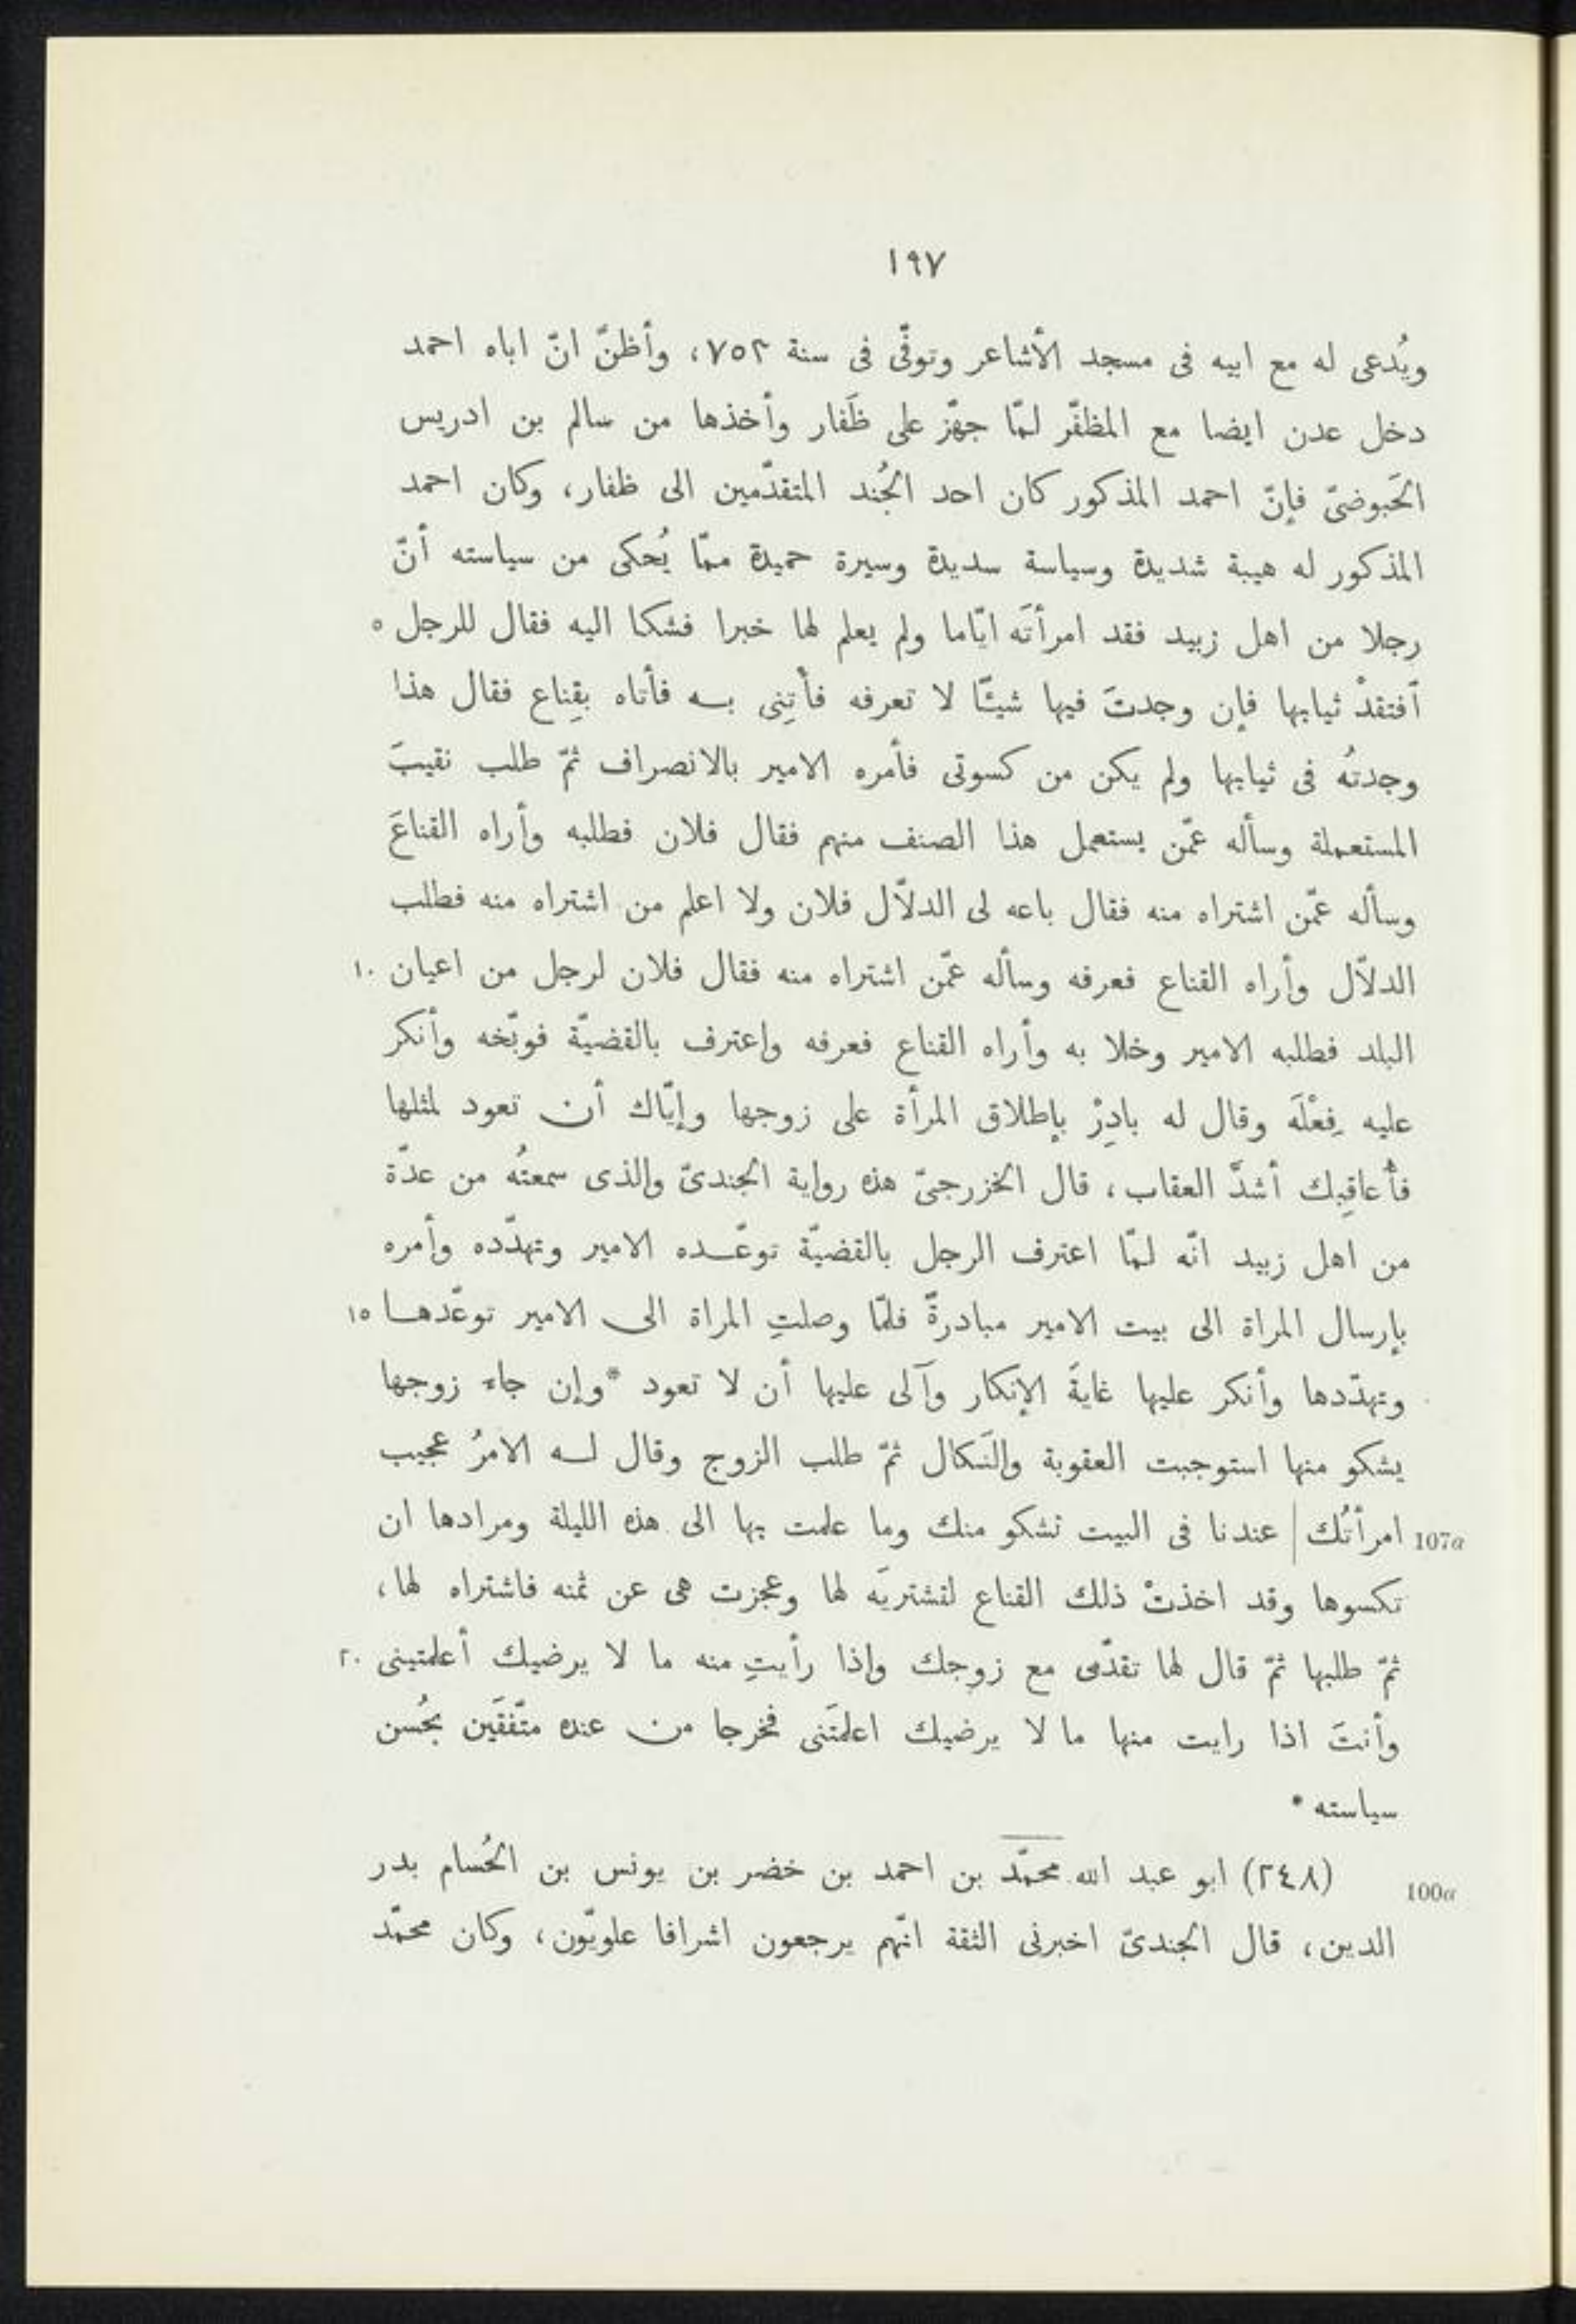 ١٩٧
ويُدعى له مع ابيه فى مسجد الأشاعر وتوفّى فى سنة ٧٥٢، وأظنّ انّ اباه احمد
دخل عدن ايضا مع المظفّر لمّا جهّز على ظَفار وأخذها من سالم بن ادريس
الحَبوضىّ فإنّ احمد المذكور كان احد الجُند المتقدّمين الى ظفار، وكان احمد
المذكور له هيبة شديدة وسياسة سديدة وسيرة حميدة ممّا يُحكى من سياسته أنّ
رجلا من اهل زبيد فقد امرأتَه ايّاما ولم يعلم لها خبرا فشكا اليه فقال للرجل ٥
ٱفتقدْ ثيابها فإن وجدتَ فيها شيئًا لا تعرفه فأْتِنى بـه فأتاه بقِناع فقال هذا
وجدتهُ فى ثيابها ولم يكن من كسوتى فأمره الامير بالانصراف ثمّ طلب نقيبَ
المستعملة وسأله عمّن يستعمل هذا الصنف منهم فقال فلان فطلبه وأراه القناعَ
وسأله عمّن اشتراه منه فقال باعه لى الدلّال فلان ولا اعلم من اشتراه منه فطلب
الدلّال وأراه القناع فعرفه وسأله عمّن اشتراه منه فقال فلان لرجل من اعيان ١٠
البلد فطلبه الامير وخلا به وأراه القناع فعرفه واعترف بالقضيّة فوبّخه وأنكر
عليه فِعْلَه وقال له بادِرْ بإطلاق المرأة على زوجها وإيّاك أن تعود لمثلها
فأُعاقِبك أشدَّ العقاب، قال الخزرجىّ هذه رواية الجندىّ والذى سمعتُه من عدّة
من اهل زبيد انّه لمّا اعترف الرجل بالقضيّة توعّـده الامير وتهدّده وأمره
بإرسال المراة الى بيت الامير مبادرةً فلمّا وصلتِ المراة الى الامير توعّدهـا ١٥
وتهدّدها وأنكر عليها غايةَ الإنكار وآلى عليها أن لا تعود *وإن جاء زوجها
يشكو منها استوجبت العقوبة والنَكال ثمّ طلب الزوج وقال لـه الامرُ عجيب
107a امرأتُك | عندنا فى البيت تشكو منك وما علمت بها الى هذه الليلة ومرادها ان
تكسوها وقد اخذتْ ذلك القناع لتشتريَه لها وعجزت هى عن ثمنه فاشتراه لها،
ثمّ طلبها ثمّ قال لها تقدّمى مع زوجك وإذا رأيتِ منه ما لا يرضيك أعلمتينى ٢٠
وأنتَ اذا رايت منها ما لا يرضيك اعلمتَنى فخرجا من عنده متّفقَين بحُسن
سياسته *
100a (٢٤٨) ابو عبد الله محمّد بن احمد بن خضر بن يونس بن الحُسام بدر
الدين، قال الجندىّ اخبرنى الثقة انّهم يرجعون اشرافا علويّون، وكان محمّد